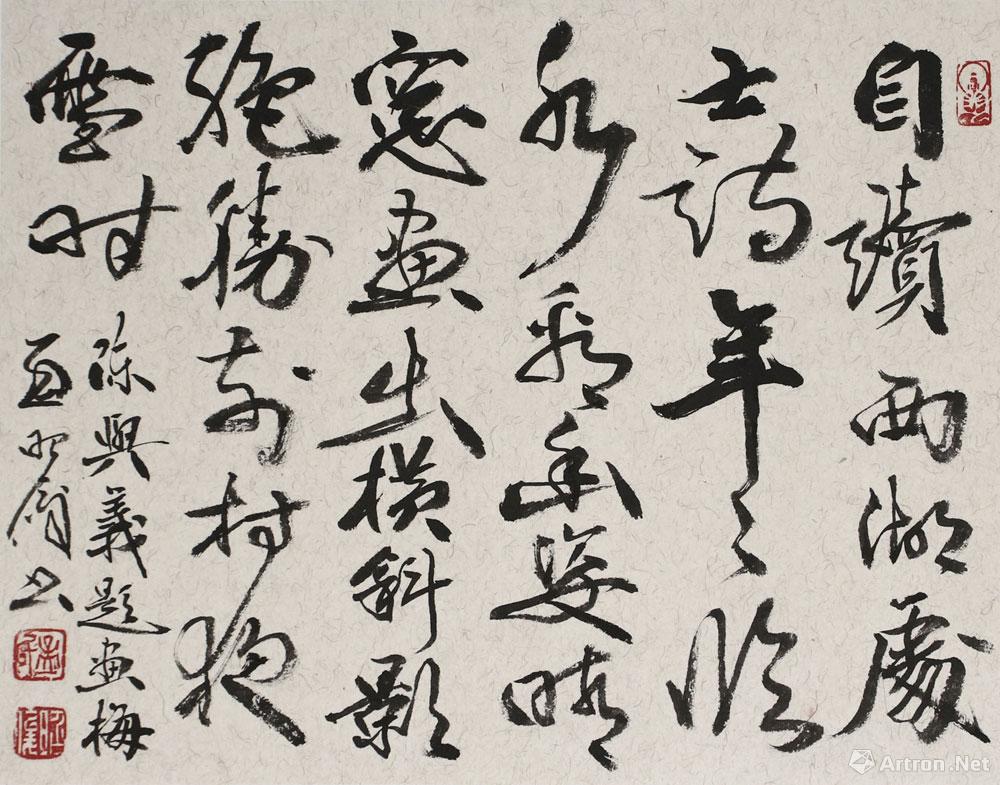 自讀西湖處
士詩年々臨
水看幽姿晴
窻畫出橫斜影
絶勝前村夜
雪時
陳與義題畫梅
昭
书
Artron.Net